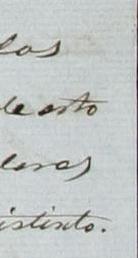 los
de esto
deros
istinto.